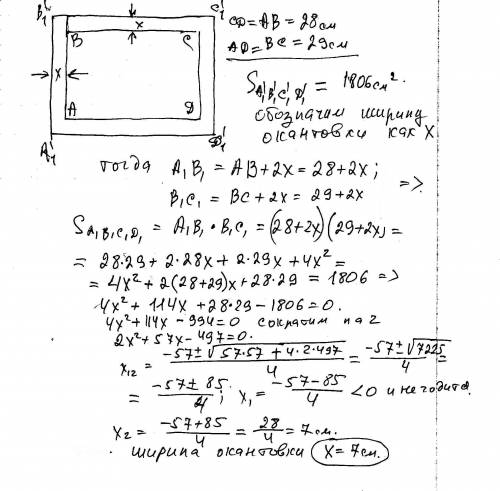 B₁' C₁'
x
B C
x
A D
A₁' D₁'
CD = AB = 28 см
AD = BC = 29 см
S A₁'B₁'C₁'D₁' = 1806 см².
обозначим ширину
окантовки как X
тогда A₁B₁ = AB + 2x = 28 + 2x;
B₁C₁ = BC + 2x = 29 + 2x =>
S A₁B₁C₁D₁ = A₁B₁ • B₁C₁ = (28+2x)(29+2x) =
= 28·29 + 2·28x + 2·29x + 4x² =
= 4x² + 2(28+29)x + 28·29 = 1806 =>
4x² + 114x + 28·29 - 1806 = 0.
4x² + 114x - 994 = 0 сократим на 2
2x² + 57x - 497 = 0.
x₁₂ = (-57 ± √(57·57 + 4·2·497))/4 = (-57 ± √7225)/4 =
= (-57 ± 85)/4; x₁ = (-57-85)/4 < 0 и не годится.
x₂ = (-57+85)/4 = 28/4 = 7 см.
ширина окантовки x = 7 см.